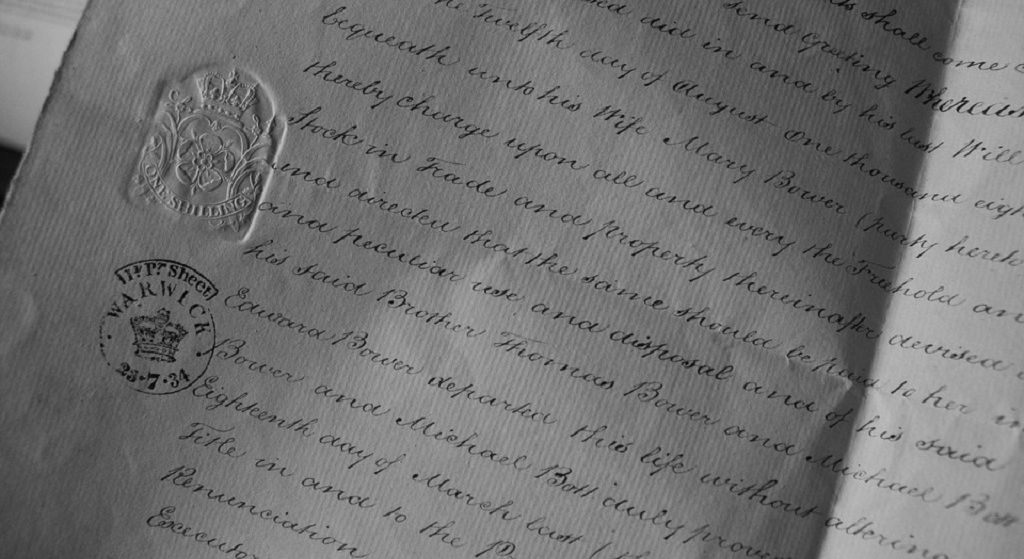 shall come
send Greeting Whereas
the Twelfth day of August One thousand eigh
did in and by his last Will
bequeath unto his Wife Mary Bower (party hereto
thereby charge upon all and every the Freehold an
Stock in Trade and property thereinafter devised
and directed that the same should be paid to her in
and peculiar use and disposal and of his said
his said Brother Thomas Bower and Michael Bott
Edward Bower departed this life without alterin
Bower and Michael Bott duly prove
Eighteenth day of March last
Title in and to the
Renunciation
Executo
ONE SHILLING
11 Pr Sheet
WARWICK
25·7·34